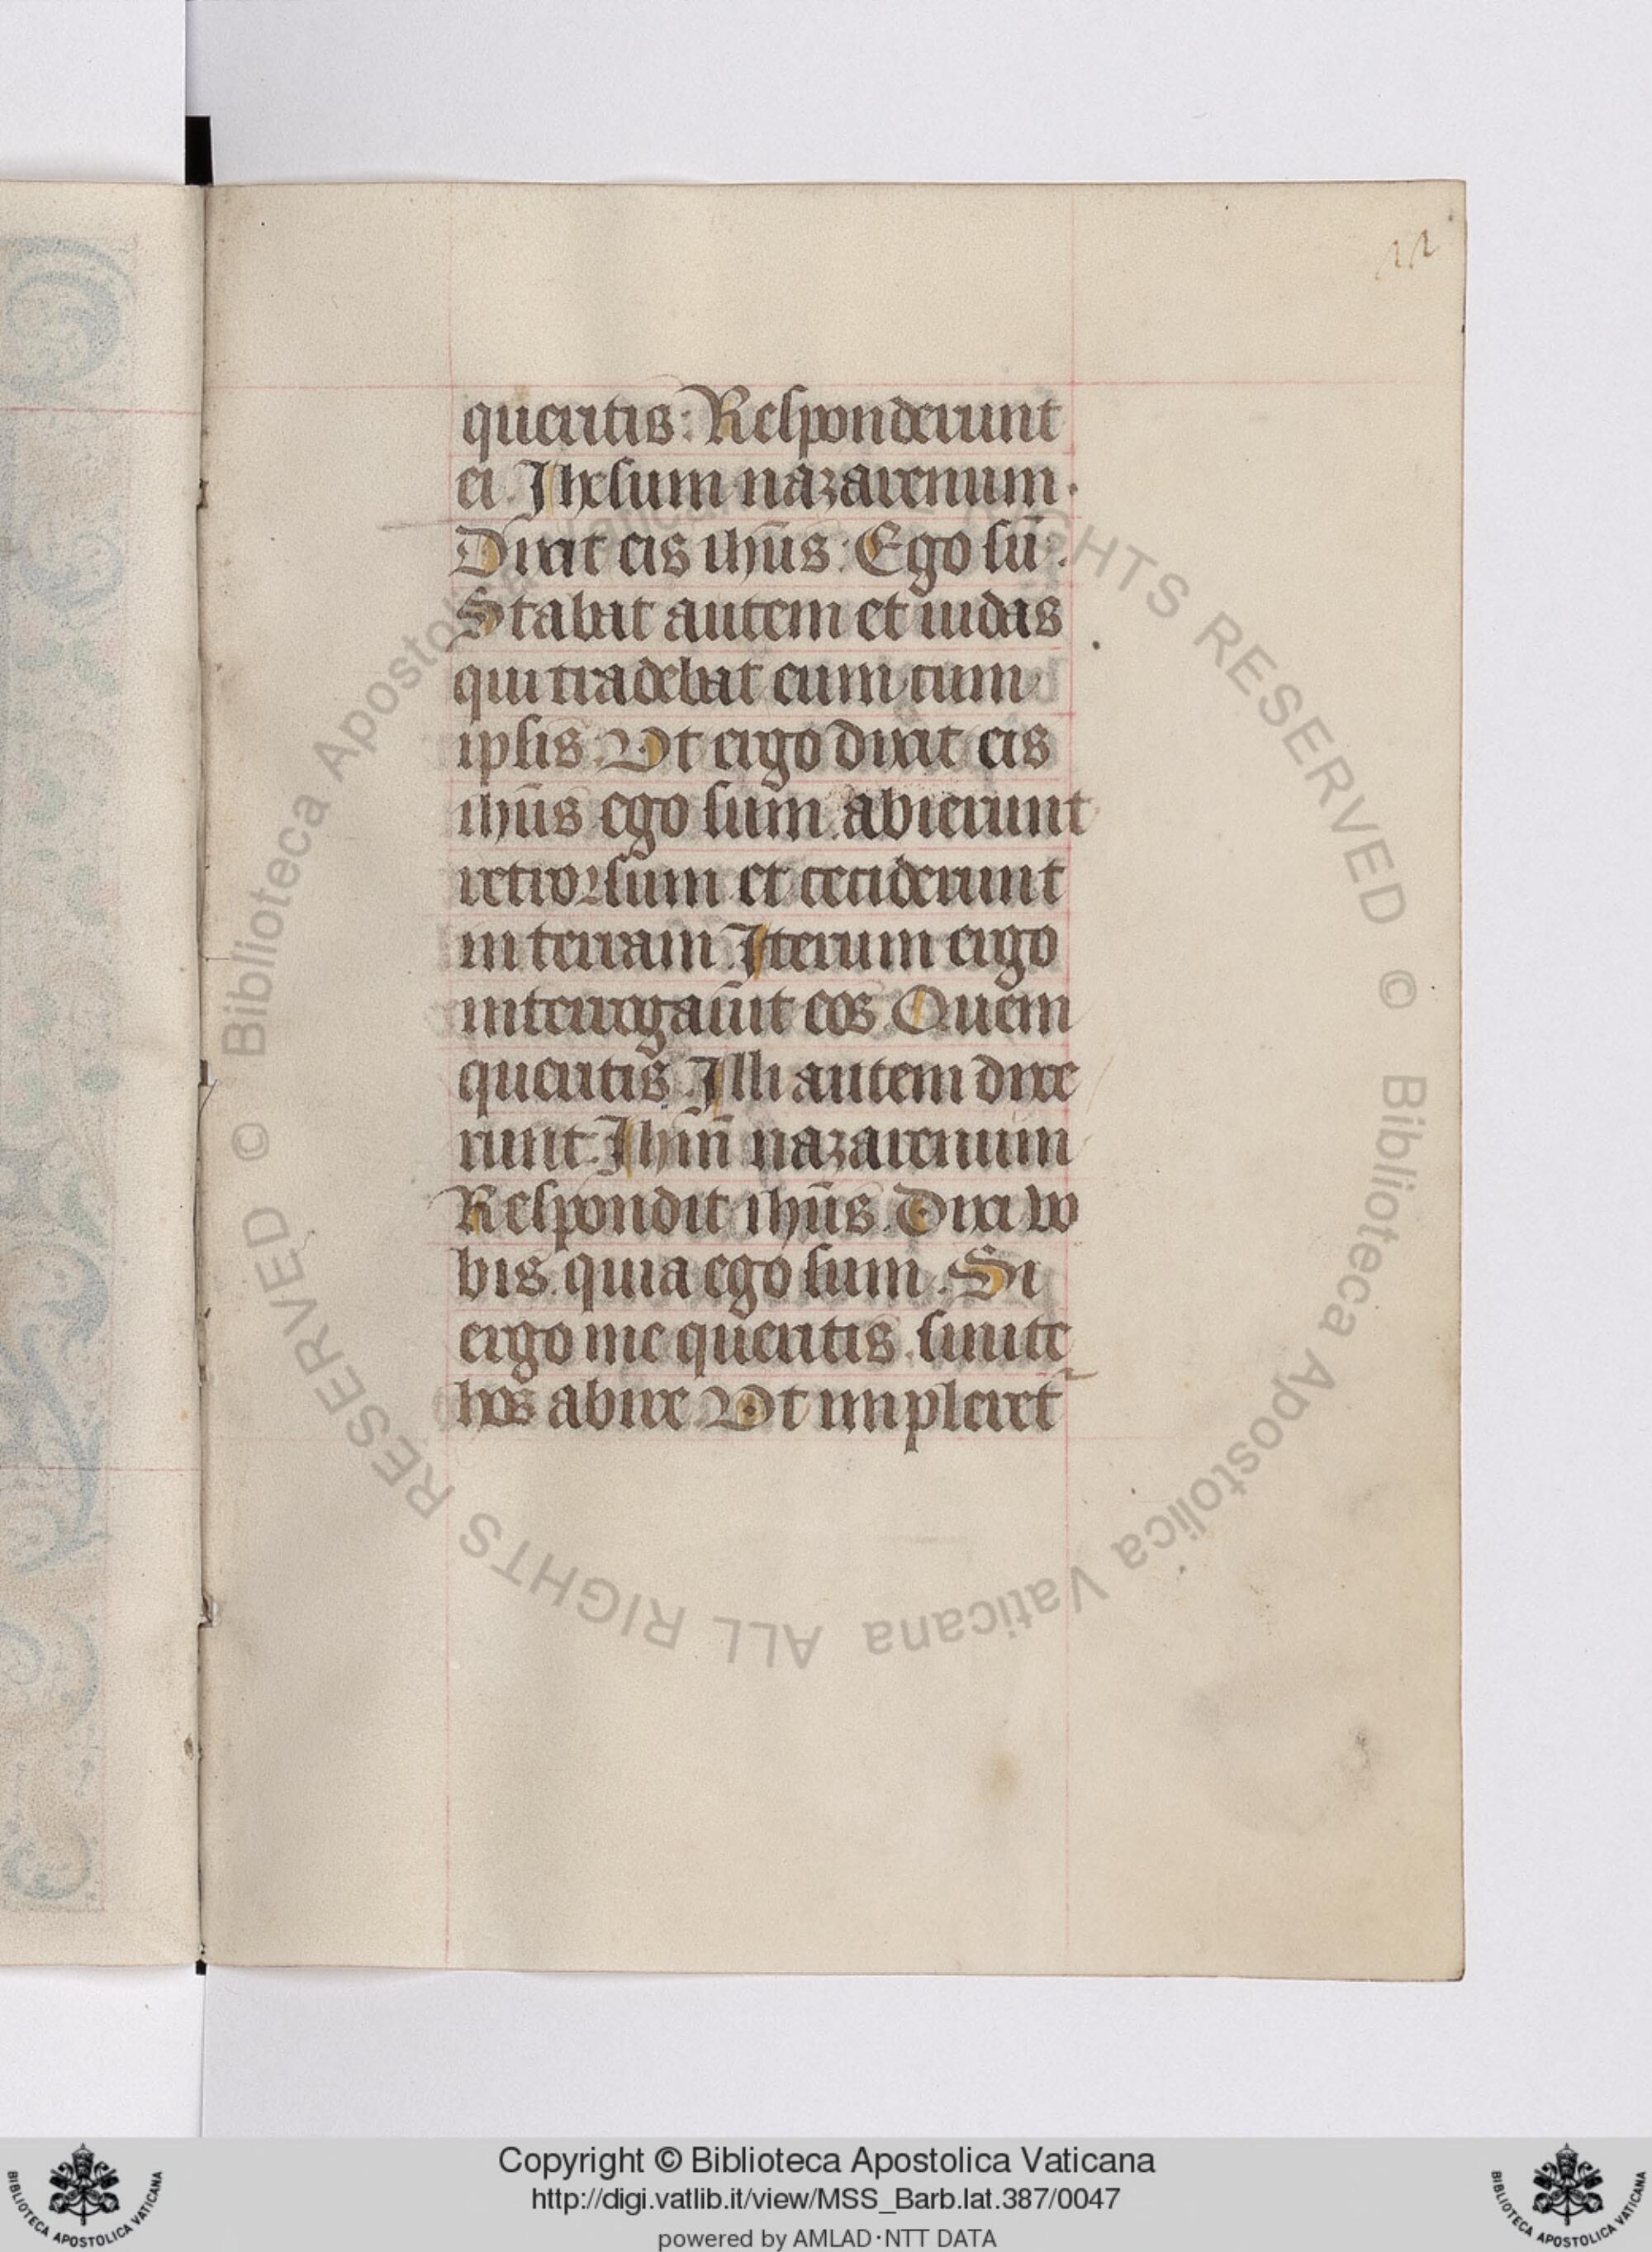 11
queritis: Responderunt
ei. Jhesum nazarenum.
Dixit eis ihūs: Ego sū.
Stabat autem et iudas
qui tradebat eum cum
ipsis. Ut ergo dixit eis
ihūs ego sum. abierunt
retrorsum et ceciderunt
in terram. Iterum ergo
interrogauit eos. Quem
queritis. Illi autem dixe
runt. Jhm̄ nazarenum
Respondit ihūs. Dixi vo
bis. quia ego sum. Si
ergo me queritis. sinite
hos abire. Ut impleret᷑
© Biblioteca Apostolica Vaticana ALL RIGHTS RESERVED © Biblioteca Apostolica Vaticana ALL RIGHTS RESERVED
Copyright © Biblioteca Apostolica Vaticana
http://digi.vatlib.it/view/MSS_Barb.lat.387/0047
powered by AMLAD·NTT DATA
BIBLIOTECA APOSTOLICA VATICANA
BIBLIOTECA APOSTOLICA VATICANA